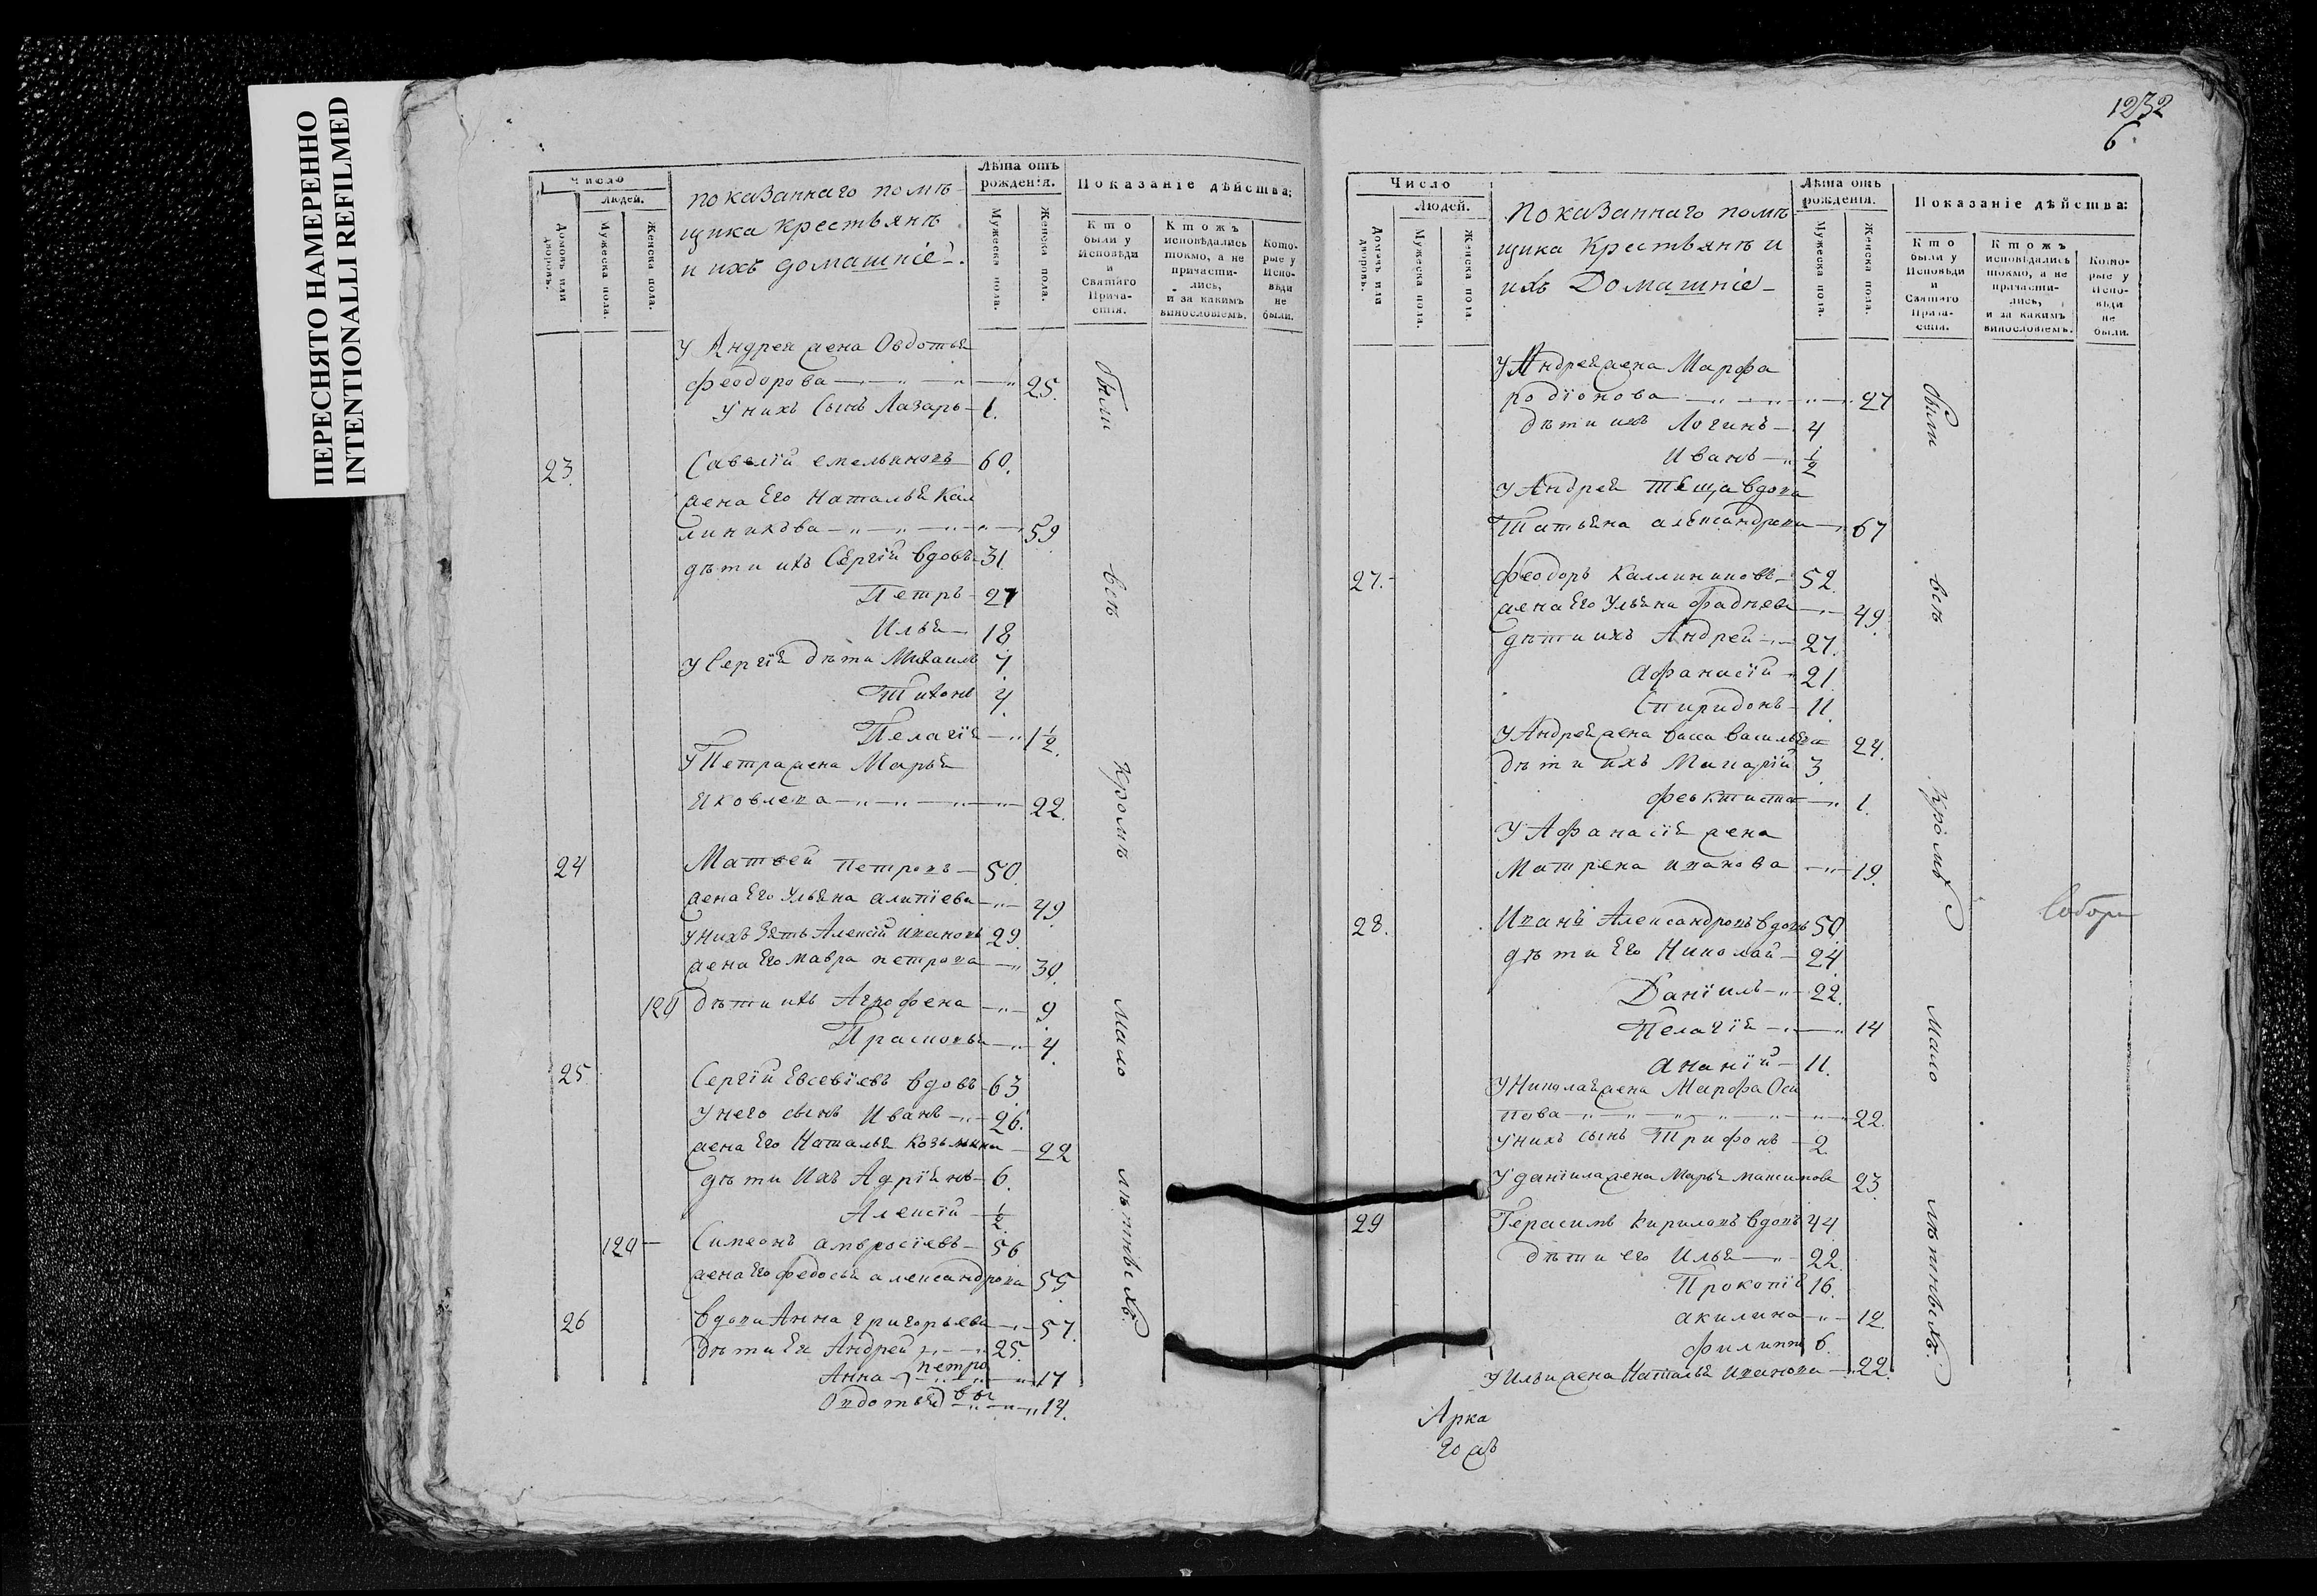 ПЕРЕСНЯТО НАМЕРЕННО
INTENTIONALLI REFILMED
Число
Людей.
Домовъ или дворовъ.
Мужеска пола.
Женска пола.
показаннаго помѣ-
щика крестьянъ
и ихъ домашніе.
Лѣта отъ рожденія.
Мужеска пола.
Женска пола.
Показаніе дѣйства:
Кто были у Исповѣди и Святаго Причастія.
Ктожъ исповѣдались токмо, а не причастились, и за какимъ винословіемъ.
Которые у Исповѣди не были.
У Андрея жена Овдотья
Феодорова 25.
У нихъ сынъ Лазарь 1.
23. Савелій Емельяновъ 60.
жена Его Наталья Кал
линикова 59
дѣти ихъ Сергій вдовъ 31
Петръ 27
Илья 18
У Сергія дѣти Михаилъ 7
Тихонъ 4
Пелагія 1 1/2
У Петра жена Марья
Яковлева 22.
24 Матвей Петровъ 50.
жена Его Ульяна Алипіева 49
У нихъ Зять Алексій Ивановъ 29.
жена Его Мавра Петрова 30.
120 дѣти ихъ Агрофена 9
Прасковья 4
25 Сергій Евсевіевъ вдовъ 63
У него сынъ Иванъ 26.
жена Его Наталья Козьмина 22
дѣти Ихъ Адріянъ 6.
Алексій 1/2
120 Симеонъ Амвросіевъ 56
жена Его Федосья Александрова 55
26 вдова Анна Григорьева 57.
дѣти Ея Андрей 25.
Анна Петро 17
Овдотья вы 14.
были
всѣ
кромѣ
мало
лѣтныхъ.
1232
6.
Число
Людей.
Домовъ или дворовъ.
Мужеска пола.
Женска пола.
Показаннаго помѣ
щика Крестьянъ и
ихъ Домашніе
Лѣта отъ рожденія.
Мужеска пола.
Женска пола.
Показаніе дѣйства:
Кто были у Исповѣди и Святаго Причастія.
Ктожъ исповѣдались токмо, а не причастились, и за какимъ винословіемъ.
Которые у Исповѣди не были.
У Андрея жена Марфа
Родіонова 27
дѣти ихъ Логинъ 4
Иванъ 1/2
У Андрея теща вдова
Татьяна Александрова 67
27. Феодоръ Каллиниковъ 52.
жена Его Ульяна Фадѣева 49.
дѣти ихъ Андрей 27.
Афанасій 21
Спиридонъ 11.
У Андрея жена Васса Васильева 24.
дѣти ихъ Макарій 3.
Феоктиста 1.
У Афанасія жена
Матрена Иванова 19.
28. Иванъ Александровъ вдовъ 50
дѣти Его Николай 24
Даніилъ 22.
Пелагія 14
Ананій 11.
У Николая жена Марфа Оси
пова 22.
У нихъ сынъ Трифонъ 2.
У Даніила жена Марья Максимова 23.
29 Герасимъ Кириловъ вдовъ 44
дѣти его Илья 22.
Прокопій 16.
Акилина 12.
Филиппъ 6.
У Ильи жена Наталья Иванова 22.
были
всѣ
кромѣ
мало
лѣтныхъ.
Арка